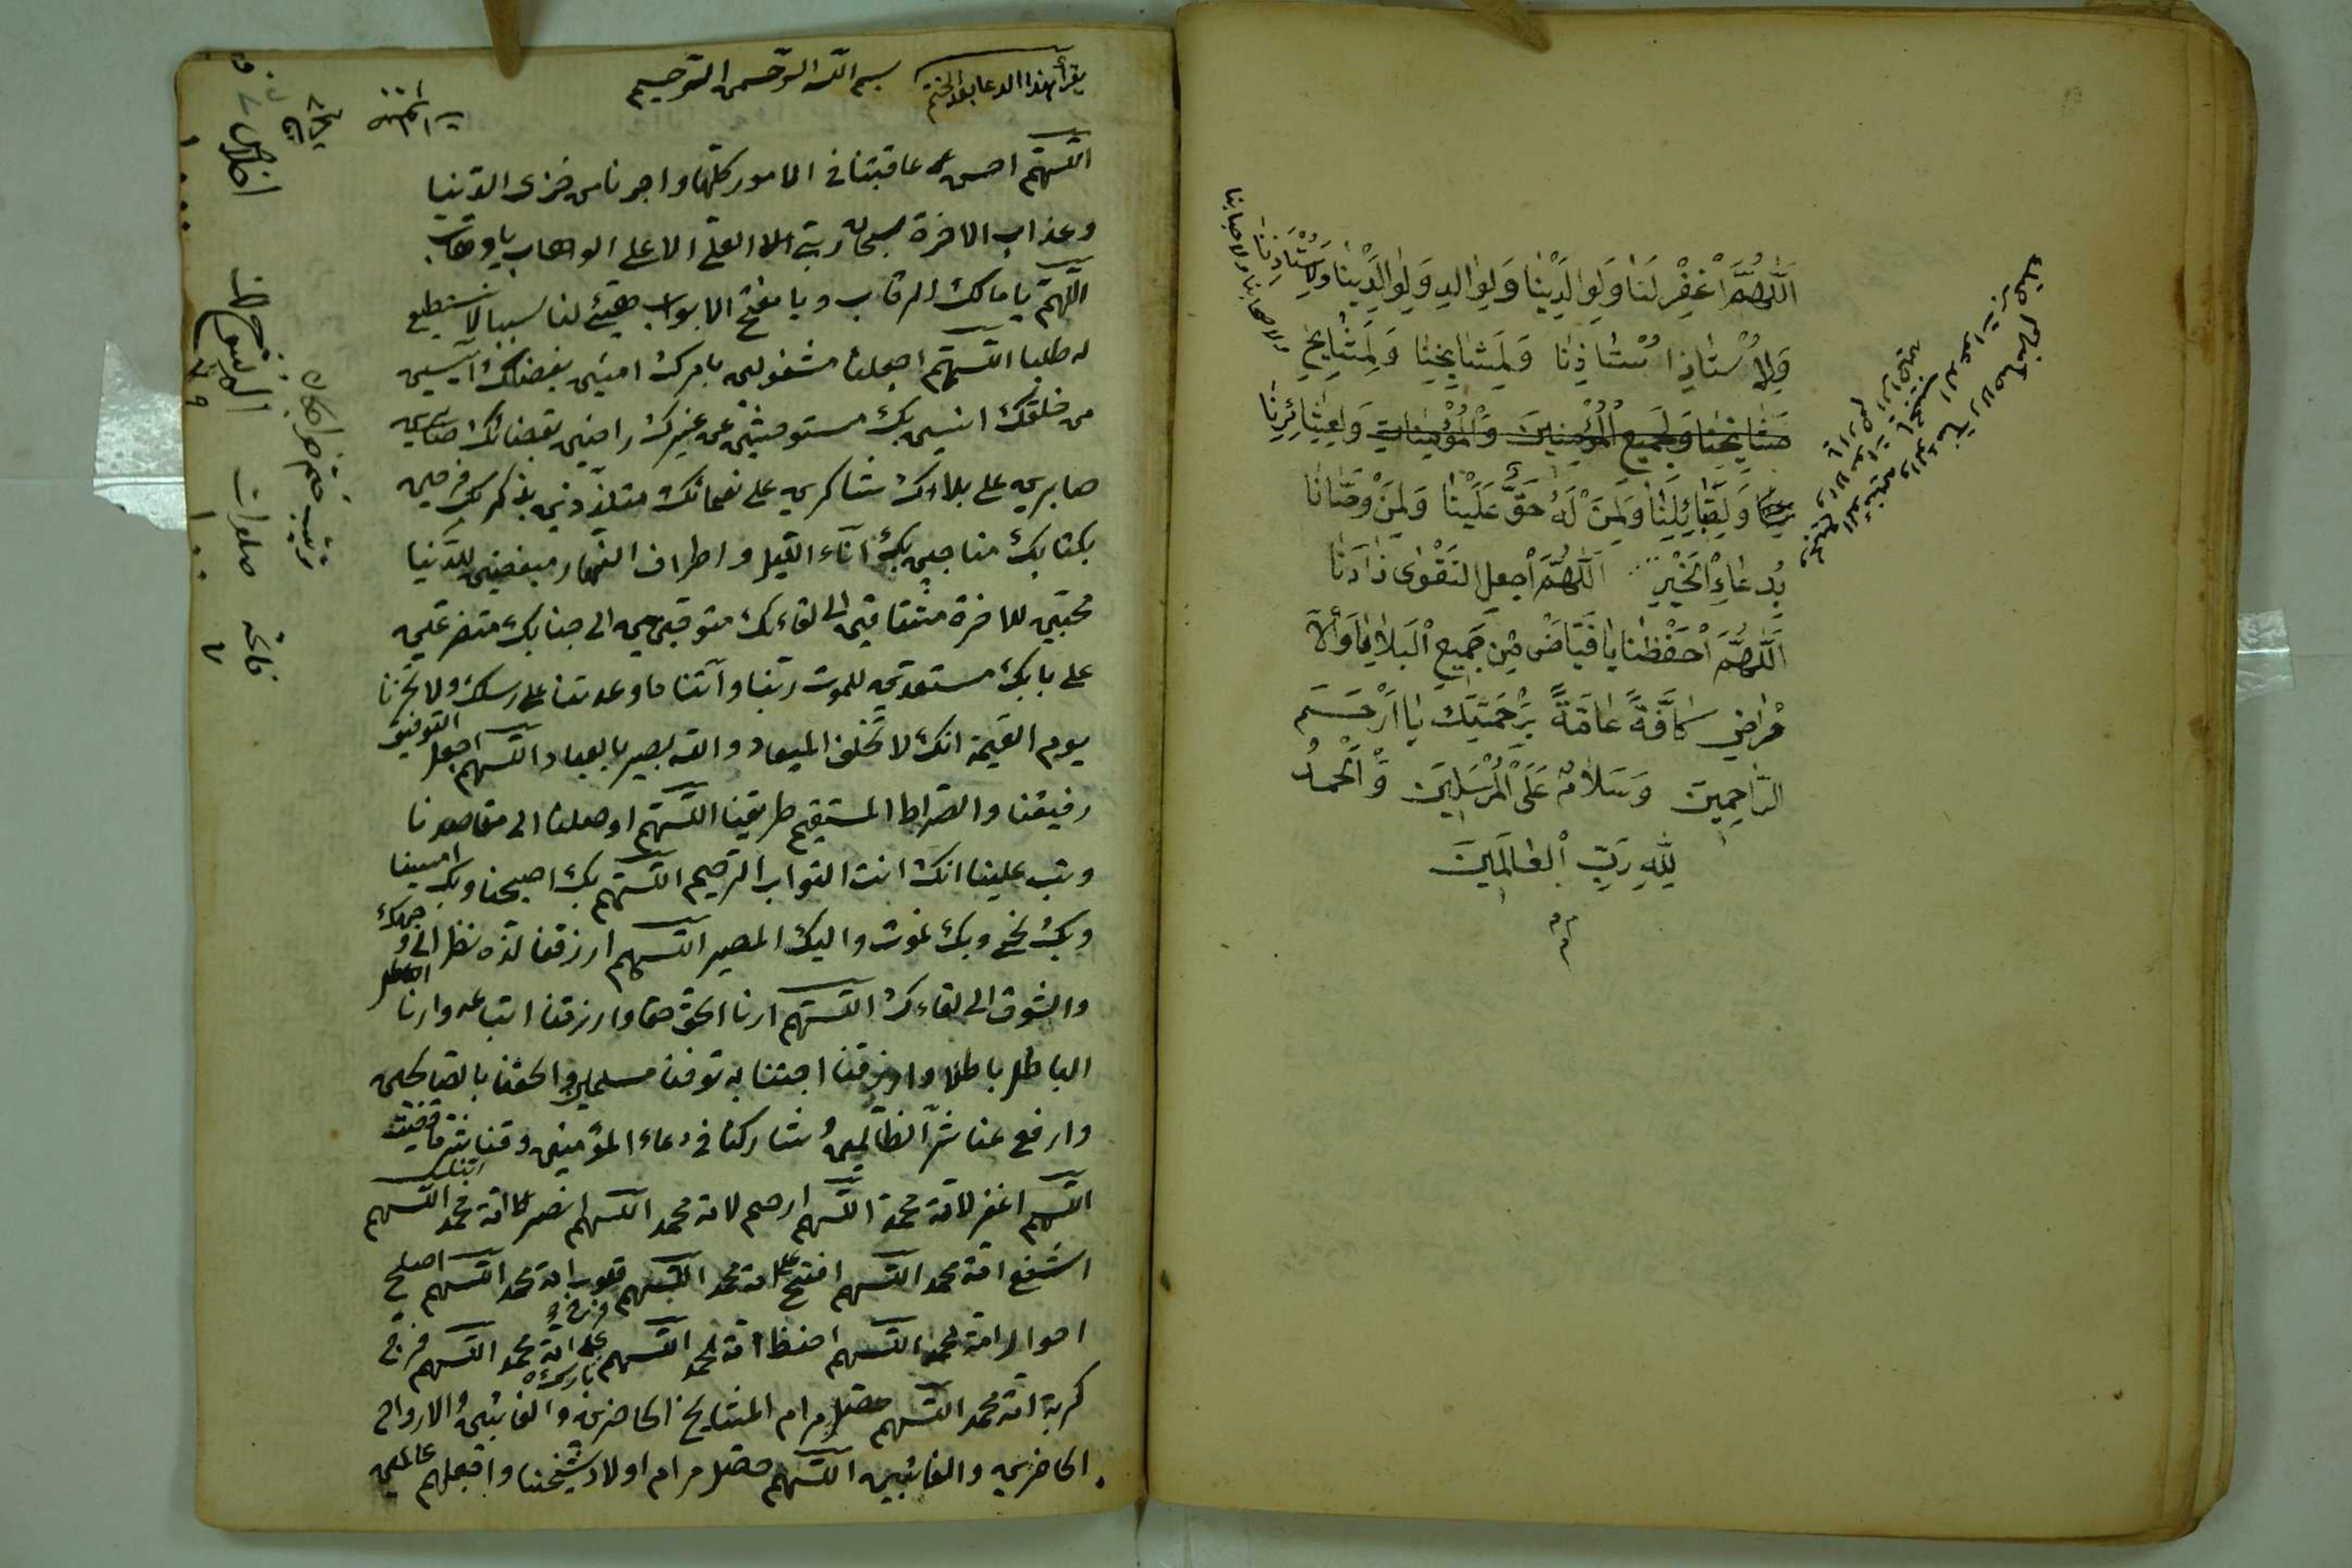 اَللّٰهُمَّ اغْفِرْ لَنَا وَلِوَالِدِيْنَا وَلِوَالِدِ وَلِوَالِدَيْنَا وَلِاُسْتَاذِنَا
ولاصحابنا ولاحبابنا
وَلِاُسْتَاذِ اُسْتَاذِنَا وَلِمَشَايِخِنَا وَلِمَشَايِخِ
مَشَايِخِنَا وَلِجَمِيعِ الْمُؤْمِنِينَ وَالْمُؤْمِنَاتِ وَلِعَشَائِرِنَا
وَلِقَبَائِلِنَا وَلِمَنْ لَهُ حَقٌّ عَلَيْنَا وَلِمَنْ وَصَّانَا
بِدُعَاءِ الْخَيْرِ اَللّٰهُمَّ اجعل التَقْوٰى زَادَنَا
اَللّٰهُمَّ احْفَظْنَا يَا فَيَّاضُ مِنْ جَمِيعِ الْبَلَايَا وَالْاَ
مْرَاضِ كَافَّةً عَامَّةً بِرَحْمَتِكَ يَا اَرْحَمَ
الرَّاحِمِينَ وَسَلَامٌ عَلَى الْمُرْسَلِينَ وَالْحَمْدُ
لِلّٰهِ رَبِّ الْعَالَمِينَ
يقرأ هذا الدعا بعد الختم
بسم الله الرحمن الرحيم
اللهم احسن عاقبتنا في الامور كلها واجرنا من خزى الدنيا
وعذاب الاخرة سبحان ربى العلى الاعلى الوهاب يا وهاب
اللهم يا مالك الرقاب ويا مفتح الابواب هيئ لنا سببا لا نستطيع
له طلبا اللهم اجعلنا مشغولين بامرك امنين بفضلك آيسين
من خلقك انسين بك مستوحشين عن غيرك راضين بقضائك
صابرين على بلاءك شاكرين على نعمائك متلذذين بذكرك فرحين
بكتابك مناجين بك آناء الليل واطراف النهار مبغضين للدنيا
محبين للاخرة مشتاقين الى لقاءك متوجهين الى جنابك متضرعين
على بابك مستعدين للموت ربنا وآتنا ما وعدتنا على رسلك ولا تخزنا
يوم القيمة انك لا تخلف الميعاد والله بصير بالعباد اللهم اجعل التوفيق
رفيقنا والصراط المستقيم طريقنا اللهم اوصلنا الى مقاصدنا
وتب علينا انك انت التواب الرحيم اللهم بك اصبحنا وبك امسينا
وبك نحى وبك نموت واليك المصير اللهم ارزقنا لذة نظر الى وجهك
والشوق الى لقاءك اللهم ارنا الحق حقا وارزقنا اتباعه وارنا
الباطل باطلا وارزقنا اجتنابه توفنا مسلمين والحقنا بالصالحين
وارفع عنا شر الظالمين وشاركنا في دعاء المؤمنين وقنا شر ما قضيت
اللهم اغفر لامة محمد اللهم ارحم لامة محمد اللهم انصر لامة محمد اللهم
اشفع امة محمد اللهم افتح على امة محمد اللهم قلوب امة محمد اللهم اصلح
احوال امة محمد اللهم احفظ امة محمد اللهم بارك على امة محمد اللهم فرج
كربة امة محمد اللهم حصل مرام المشايخ الحاضرين والغائبين والارواح
الحاضرين والغائبين اللهم حصل مرام اولاد شيخنا واجعلهم عالمين
ترتيب ختم خواجكان
فاتحه ٧
صلوات ١٠٠
الم نشرح لك ٧٩
اخلاص ١٠٠٠